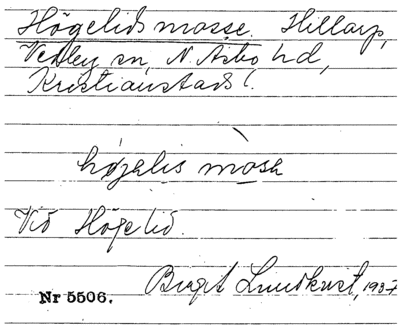 Högelids mosse. Hillarp,
Vedby sn, N. Åsbo hd,
Kristianstads l.
højalis mosa
Vid Högelid.
Birgit Lundkvist, 1937
Nr 5506.